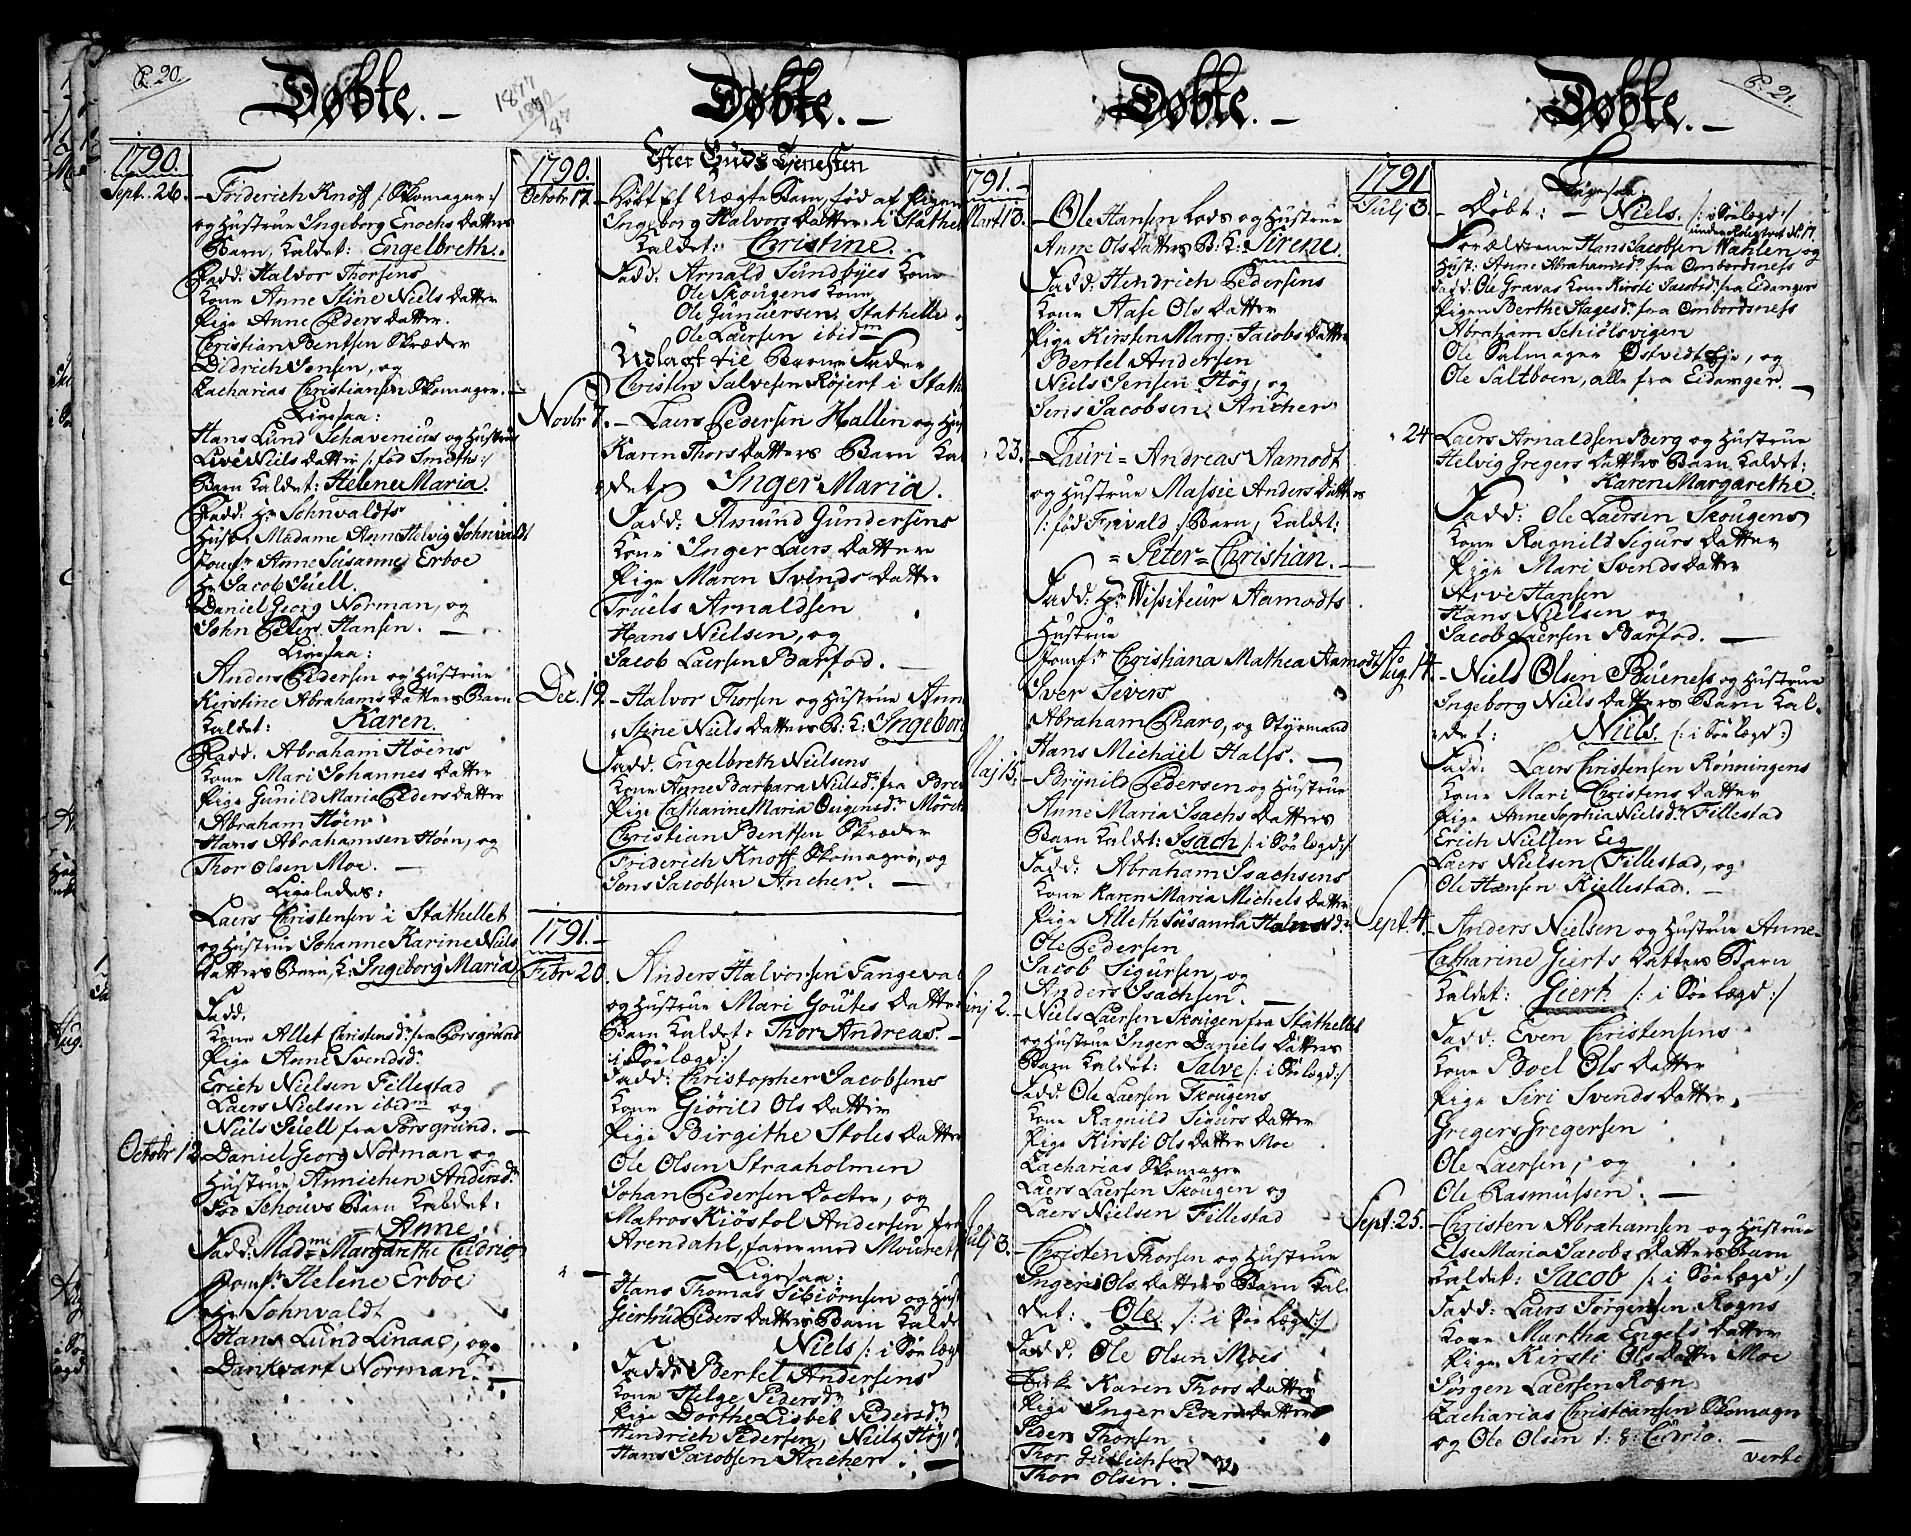 P. 20.
Döbte.
1790.
Sept. 26.
Friderich Knoff /: Skomager :/
og Hustrue Ingeborg Enochs Datters
Barn, kaldet: Engelbreth.
Fadd: Halvor Thorsens
Kone Anne Stine Niels Datter
Pige Anne Peders Datter.
Christian Bentsen Skræder
Didrich Jensen, og
Zacharias Christiansen Skomager.
Ligesaa:
Hans Lund Schavenius og Hustrue
Live Niels Datter /: fød Smiths :/
Barn kaldet: Helene Maria.
Fadd: Hr. Sohnvaldts
Hust. Madame Anne Helvig Sohnvaldt
Jomfr. Anne Susanne Erboe
Hr Jacob Juell.
Daniel Georg Norman, og
John Peter Hansen.
Ligesaa:
Anders Pedersen og Hustrue
Kirstine Abrahams Datters Barn
kaldet: Karen.
Fadd. Abraham Høens
Kone Mari Johannes Datter
Pige Gunild Maria Peders Datter
Abraham Høen
Hans Abrahamsen Høen, og
Thor Olsen Moe.
Ligeledes:
Laers Christensen i Stathellet
og Hustrue Johanne Karine Niels
Datters Barn, K: Ingeborg Maria
Fadd.
Kone Allet Christensd. fra Porsgrund
Pige Anne Svendsd.
Erich Nielsen Fillestad
Laers Nielsen ibidm og
Niels Juell fra Porsgrund.
Octobr 12.
Daniel Georg Norman og
Hustrue Annichen Andersd.
Fød Schouvs Barn kaldet:
Anne.
Fadd: Madme Margarethe Cudrio
Jomfr. Helene Erboe
Hr Sohnvaldt
Hans Lund Linaae, og
Dankvart Norman.
Döbte.
1877
1890
87
1790.
Octobr 17.
Efter Guds Tjenesten
Døbt Et Uægte Barn, fød af Pigen
Ingeborg Halvors Datter i Stathel
kaldet: Christine.
Fadd: Arnald Sundbyes Kone
Ole Skougens Kone
Ole Gundersen, Stathelle
Ole Laersen ibidm
Udlagt til Barne Fader
Christen Salvesen Røjert i Stath
Novbr 7.
Laers Pedersen Hallen og Hus
Karen Thors Datters Barn kal
det: Inger Maria.
Fadd: Amund Gundersens
Kone Inger Laers Datter
Pige Maren Svends Datter
Truels Arnaldsen
Hans Nielsen, og
Jacob Laersen Barfod.
Dec. 19
Halvor Thorsen og Hustrue Anne
Stine Niels Datters B: K: Ingeborg
Fadd. Engelbreth Nielsens
Kone Anne Barbara Nielsd. fra Brev
Pige Catharine Maria
Christian Bentsen Skræder
Friderich Knoff Skomager, og
Jens Jacobsen Ancher.
1791.
Febr 20.
Anders Halvorsen Tangeval
og Hustrue Mari Goutes Datter
Barn kaldet: Thor Andreas.
i Søe Lægd :/
Fadd: Christopher Jacobsens
Kone Giøril Ols Datter
Pige Birgithe Stoles Datter
Ole Olsen Straaholmen
Johan Pedersen Docter, og
Matros Kiøstol Andersen fra
Arendahl, farer med Mouret
Ligesaa:
Hans Thomas Sibiørnsen og Hust
Giertrud Peders Datters Barn kalde
Niels /: i Søe Læg
Fadd: Bertel Andersens
Kone Helge Pedersd.
Pige Dorthe Lisbet Pedersd.
Hindrich Pedersen, Niels Høg,
Hans Jacobsen Ancher.
Döbte.
1791.
Mart 13.
Ole Hansen Lods og Hustrue
Anne Ols Datters B: K: Sirene.
Fadd: Hendrich Pedersens
Kone Aase Ols Datter
Pige Kirsten Marg: Jacobs Datter
Bertel Andersen
Niels Jensen Høg, og
Jens Jacobsen Ancher
23.
Andreas Aamodt
og Hustrue Massie Anders Datters
/: fød Friivald :/ Barn, kaldet:
= Peter = Christian.
Fadd: Hr Wissiteur Aamodts
Hustrue
Jomfr. Christiana Mathea Aamodt
Iver Sivers
Abraham Charo, og Styrmand
Hans Michäel Halss.
Maj 15.
Brynild Pedersen og Hustrue
Anne Maria Isachs Datters
Barn kaldet: Isach /: i Søe Lægd :/
Fadd: Abraham Isachsens
Kone Karen Maria Michels Datter
Pige Alleth Susanna
Ole Pedersen
Jacob Sigursen, og
Anders Isachsen.
Junj 2.
Niels Laersen Skougen fra Stathellet
og Hustrue Inger Daniels Datters
Barn kaldet: Salve /: i Søe Lægd :/
Fadd: Ole Laersen Skougens
Kone Ragnild Sigurs Datter
Pige Kirsti Ols Datter Moe
Zacharias Skomager
Laers Laersen Skougen og
Laers Nielsen Fillestad
Julj 3.
Christen Thorsen og Hustrue
Inger Ols Datters Barn kal-
det: Ole. /: i Søe Lægd :/
Fadd: Ole Olsen Moes
Karen Thors Datter
Pige Inger Peders Datter
Peder Thorsen
Thor Gullichsen og
Thor Olsen.
P. 21.
Döbte.
1791
Julj 3.
Ligesaa:
Døbt: Niels. /: i Søe Lægd :/
under Rougtved No. 17
Forældrene Hans Jacobsen Wahlen og
Hust: Anne Abrahamsd. fra Ombordsness
Fadd: Ole Gravas Kone Kirsti Jacobsd. fra Eidanger
Pigen Berthe Aagesd. fra Ombordsness
Abraham Schiölsvigen
Ole Salmager Østvidt Eje, og
Ole Saltboen, alle fra Eidanger.
24
Laers Arnaldsen Berg og Hustrue
Helvig Gregers Datters Barn kaldet:
Karen Margarethe.
Fadd: Ole Laersen Skougens
Kone Ragnild Sigurs Datter
Pige Mari Svends Datter
Arve Hansen
Hans Nielsen og
Jacob Laersen Barfod.
Aug 14.
Niels Olsen Bueness og Hustrue
Ingeborg Niels Datters Barn kal-
det: Niels. /: i Søe Lægd :/
Fadd: Laers Christensen Rønningens
Kone Mari Christens Datter
Pige Anne Sophia Nielsd. Fillestad
Erich Nielsen Eeg
Laers Nielsen Fillestad, og
Ole Hansen Kiellestad.
Sept. 4.
Anders Nielsen og Hustrue Anne
Catharine Gierts Datters Barn
kaldet: Giert. /: i Søe Lægd :/
Fadd: Even Christensens
Kone Boel Ols Datter
Pige Siri Svends Datter,
Gregers Gregersen
Ole Laersen, og
Ole Rasmussen.
Sept: 25.
Christen Abrahamsen og Hustrue
Else Maria Jacobs Datters Barn
kaldet: Jacob /: i Søe Lægd :/
Fadd: Laers Jørgensen Rogns
Kone Martha Engels Datter
Pige Kirsti Ols Datter Moe
Jørgen Laersen Rogn
Zacharias Christiansen Skomager
og Ole Olsen t: 8: Cudrio.
verte